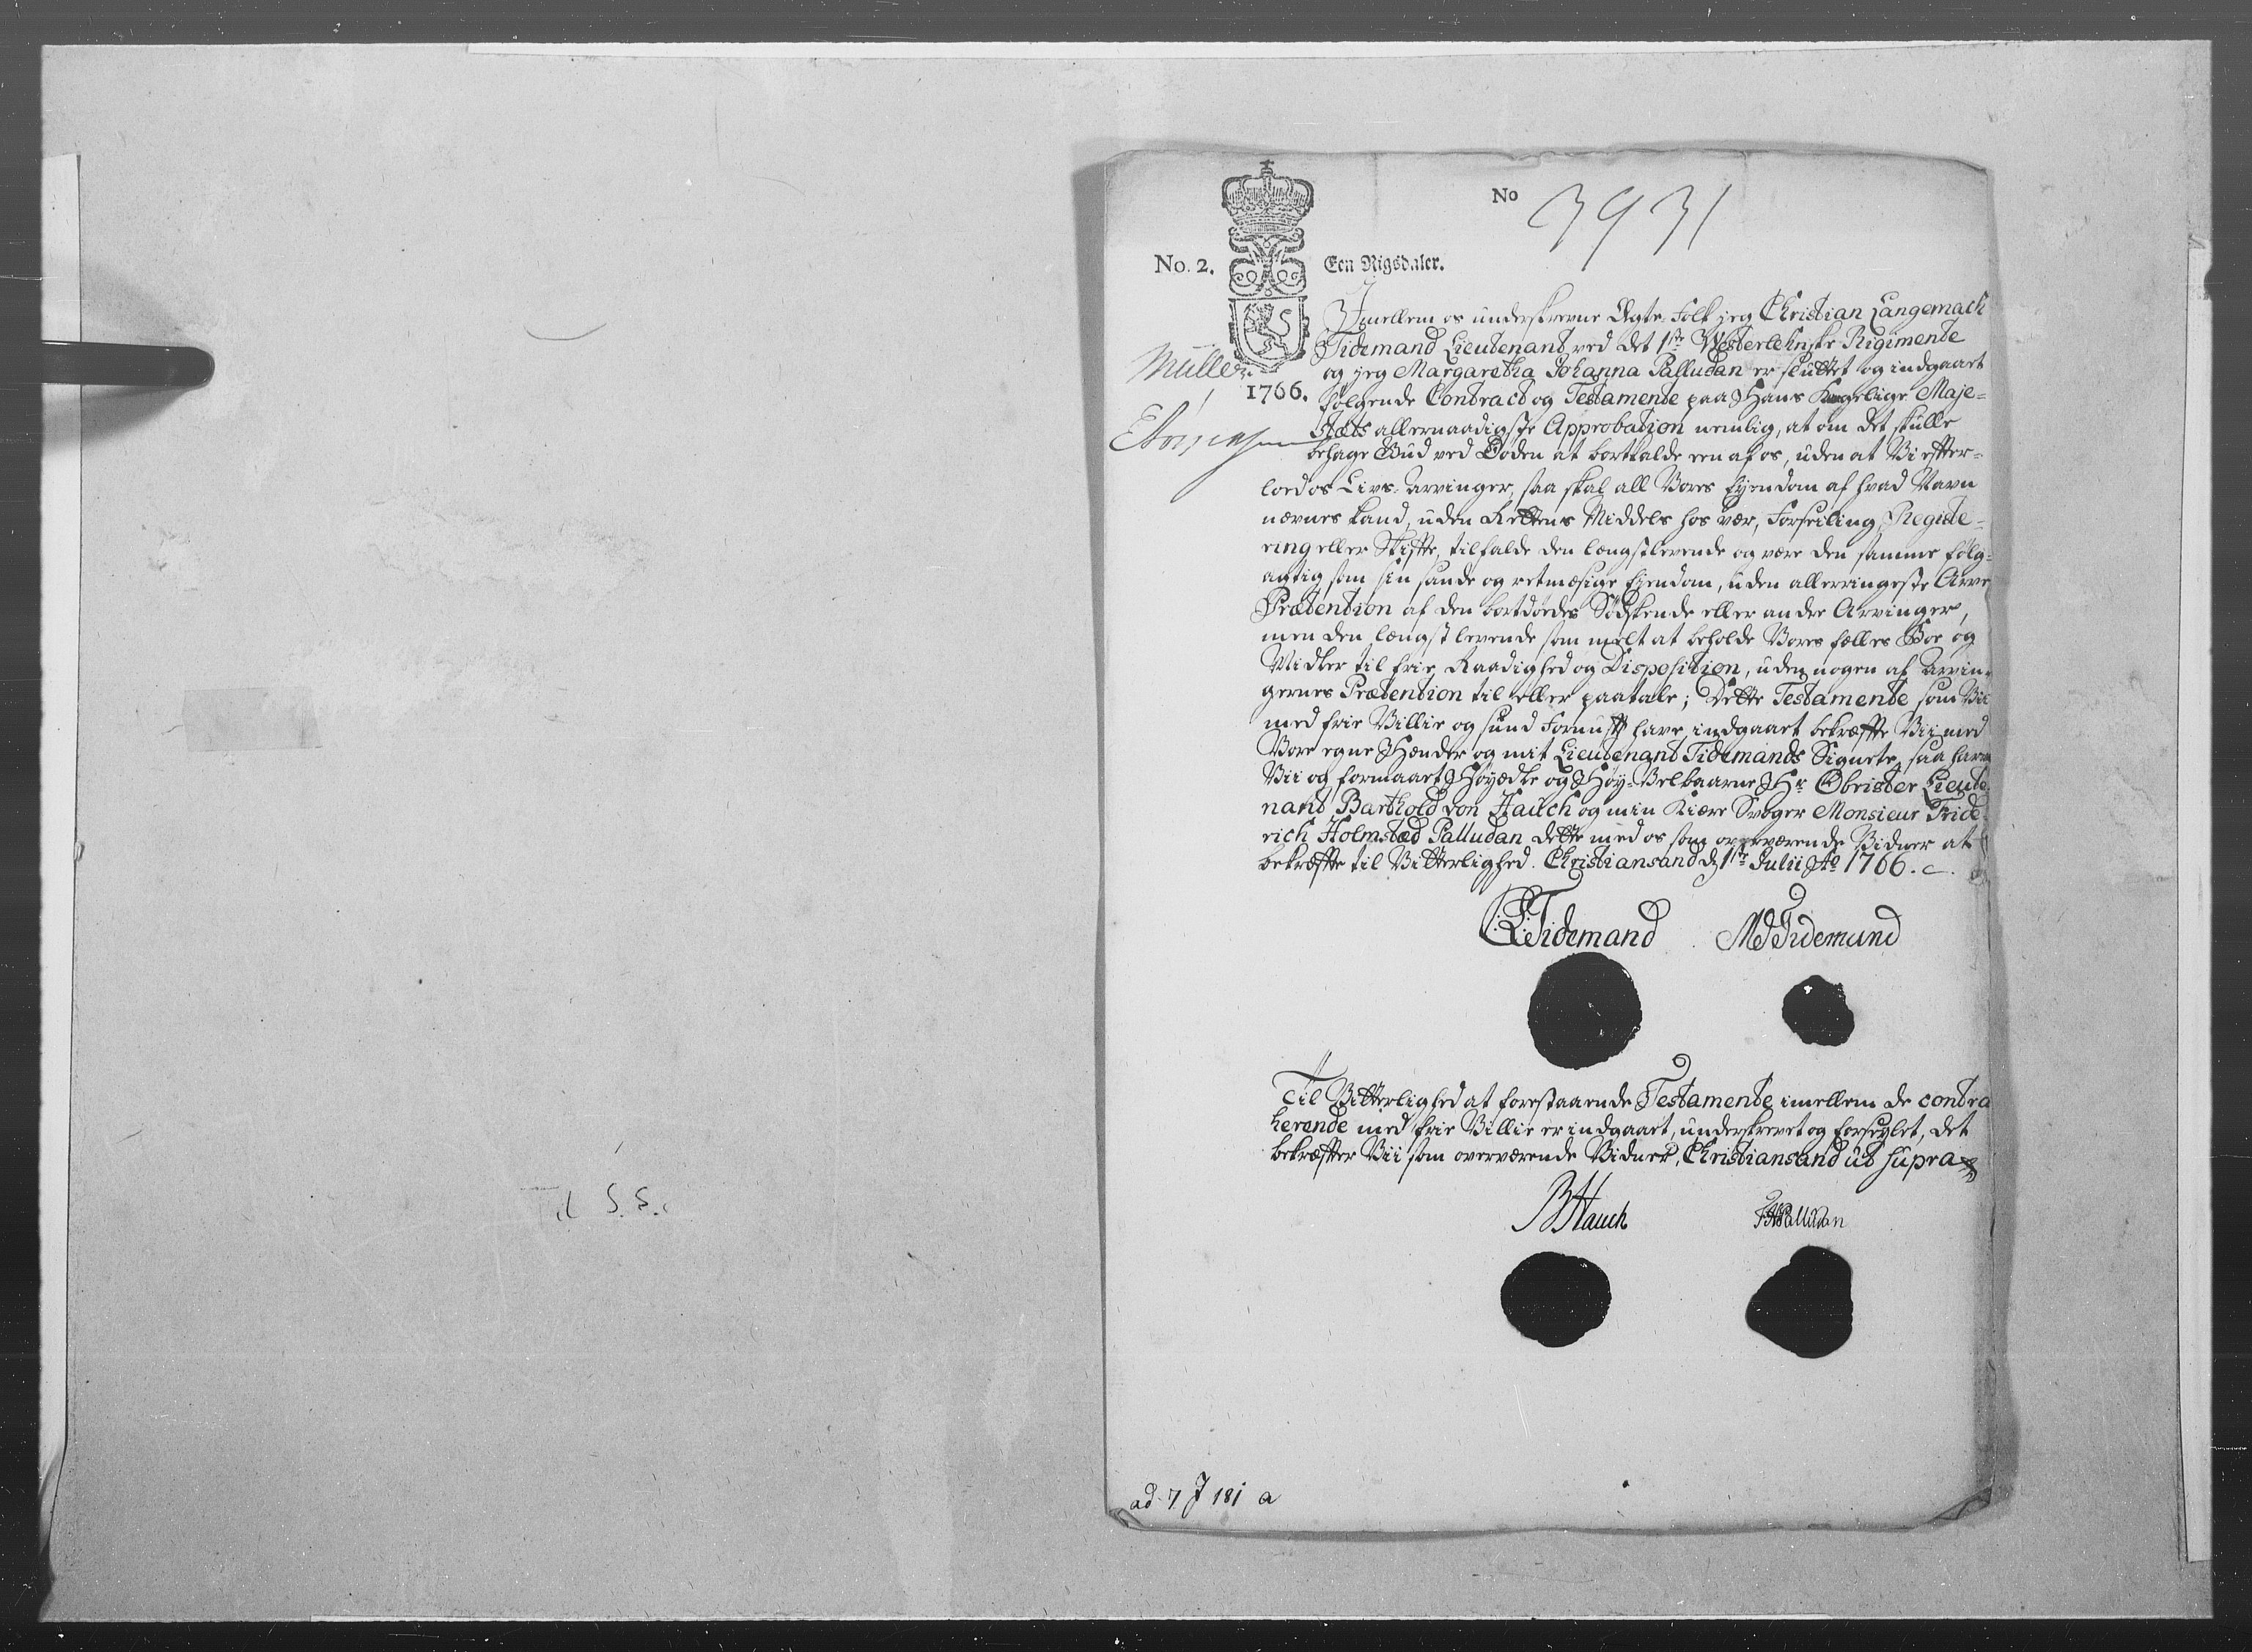 No 3931
No. 2.
Een Rigsdaler.
Müller
1766.
Imellem os underskrevne Ægte-Folk jeg Christian Langemach
Tidemand Lieutenant ved det 1ste Westerlehnske Regimente
og jeg Margaretha Johanna Palludan er sluttet og indgaaet
følgende Contract og Testamente paa Hans Kongelige Maje-
stæts allernaadigste Approbation nemlig, at om det skulle
behage Gud ved Døden at bortkalde een af os, uden at Vi efter-
lod os Livs-Arvinger, saa skal all Vores Ejendom af hvad Navn
nævnes kand, uden Rettens Middels hos vær, Forseiling, Regiite-
ring eller Skifte, tilfalde den længstlevende og være den samme følg-
agtig som sin sande og retmæsige Ejendom, uden allerringeste Arve
Prætention af den bortdødes Sødskende eller andre Arvinger,
men den længst levende som melt at beholde Vores fælles Boe og
Midler til frie Raadighed og Disposition, uden nogen af Arvin-
gernes Prætention til eller paatale; Dette Testamente som Vii
med frie Villie og sund Fornuft have indgaaet bekræfte Vii med
Vore egne Hænder og mit Lieutenant Tidemands Signete, saa have
Vii og formaaet Høyædle og Høy-Velbaarne Hr Obrister Lieute-
nant Barthold von Hauch og min Kiære Svoger Monsieur Fride-
rich Holmsted Palludan dette med os som overværende Vidner at
bekræfte til Vitterlighed. Christiansand d 1ste Julii Ao 1766.
CLTidemand MJTidemand
Til Vitterlighed at forestaaende Testamente imellem de contra
herende med frie Villie er indgaaet, underskrevet og forseylet, det
bekræfter Vii som overværende Vidner, Christiansand ut supra
BHauch FHPalludan
Til S. S.
ad 7 J 181 a